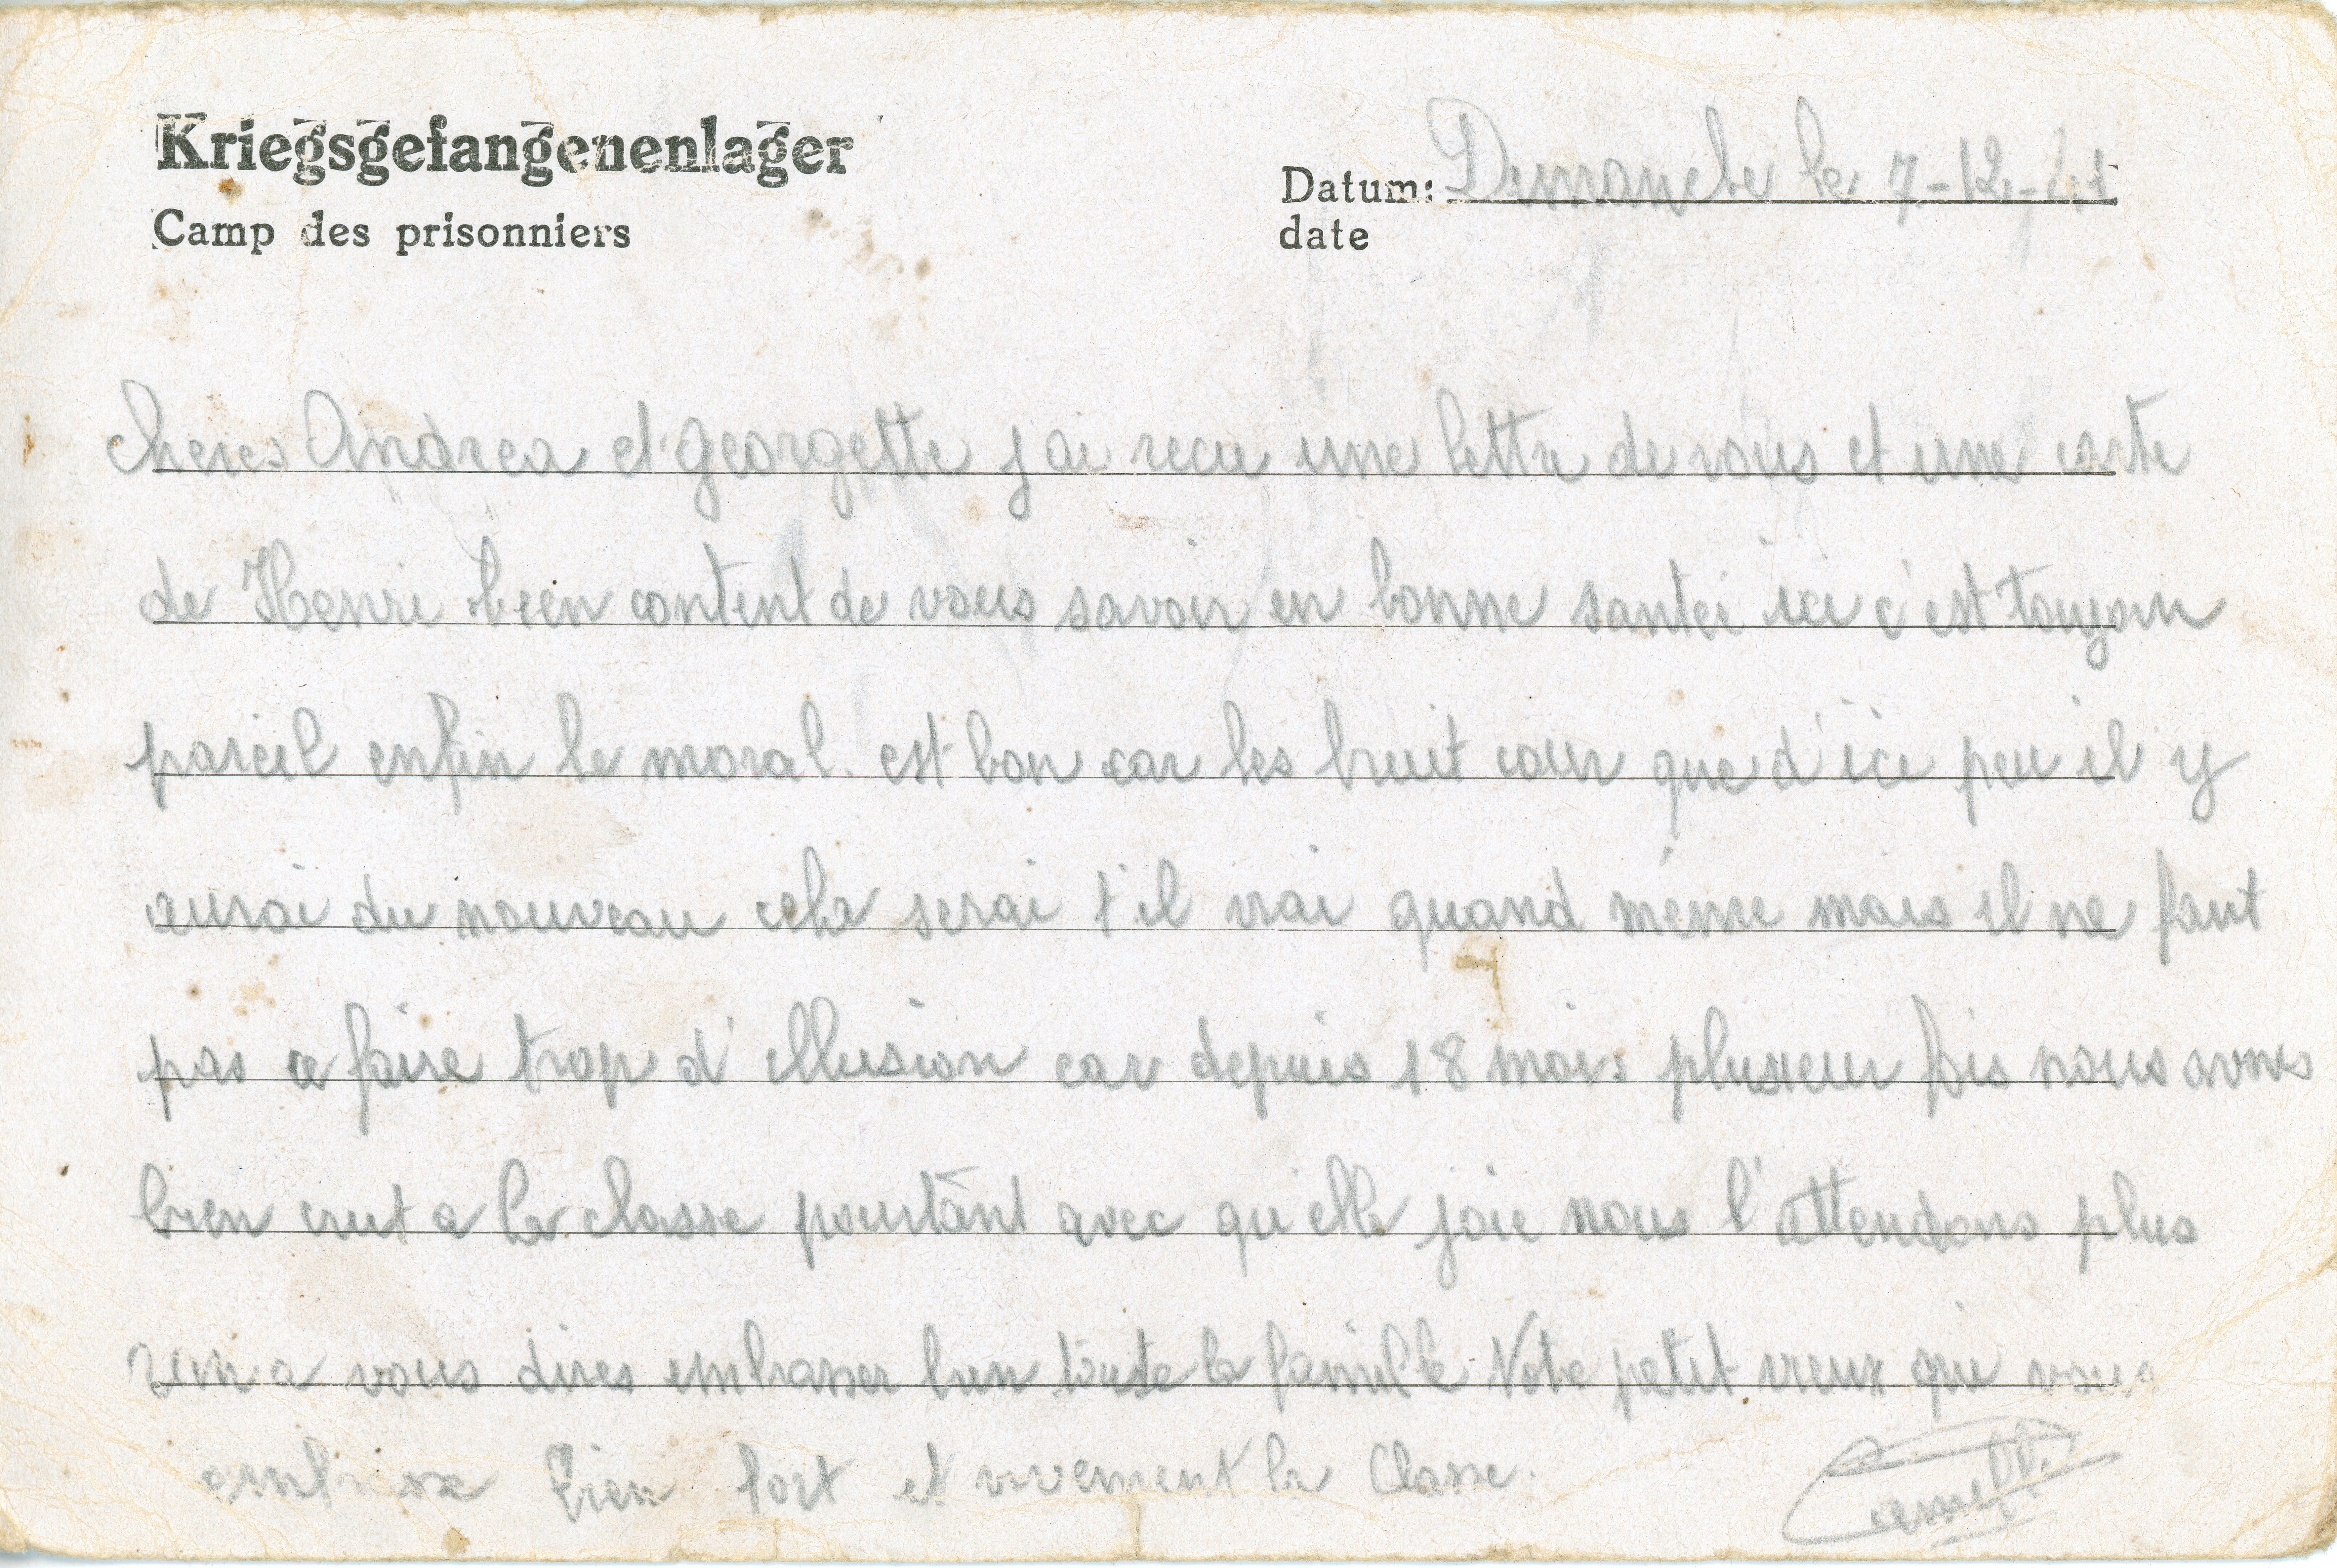 Kriegsgefangenenlager
Camp des prisonniers
Datum: Dimanche le 7-12-41
date
Cheres Andrea et georgette j ai recu une lettre de vous et une carte
de Henri bien content de vous savoir en bonne santéi ici c'est toujour
pareil enfin le moral est bon car les bruit cour que d'ici peu il y
aurai du nouveau cela serai t'il vrai quand même mais il ne faut
pas ce faire trop d'illusion car depuis 18 mois plusieur fois nous avons
bien crut a la classe pourtant avec qu'elle joie nous l'attendons plus
rien a vous dires embrasser bien toute la famille Vote petit vieux qui vous
embrasse bien fort et vivement la Classe.